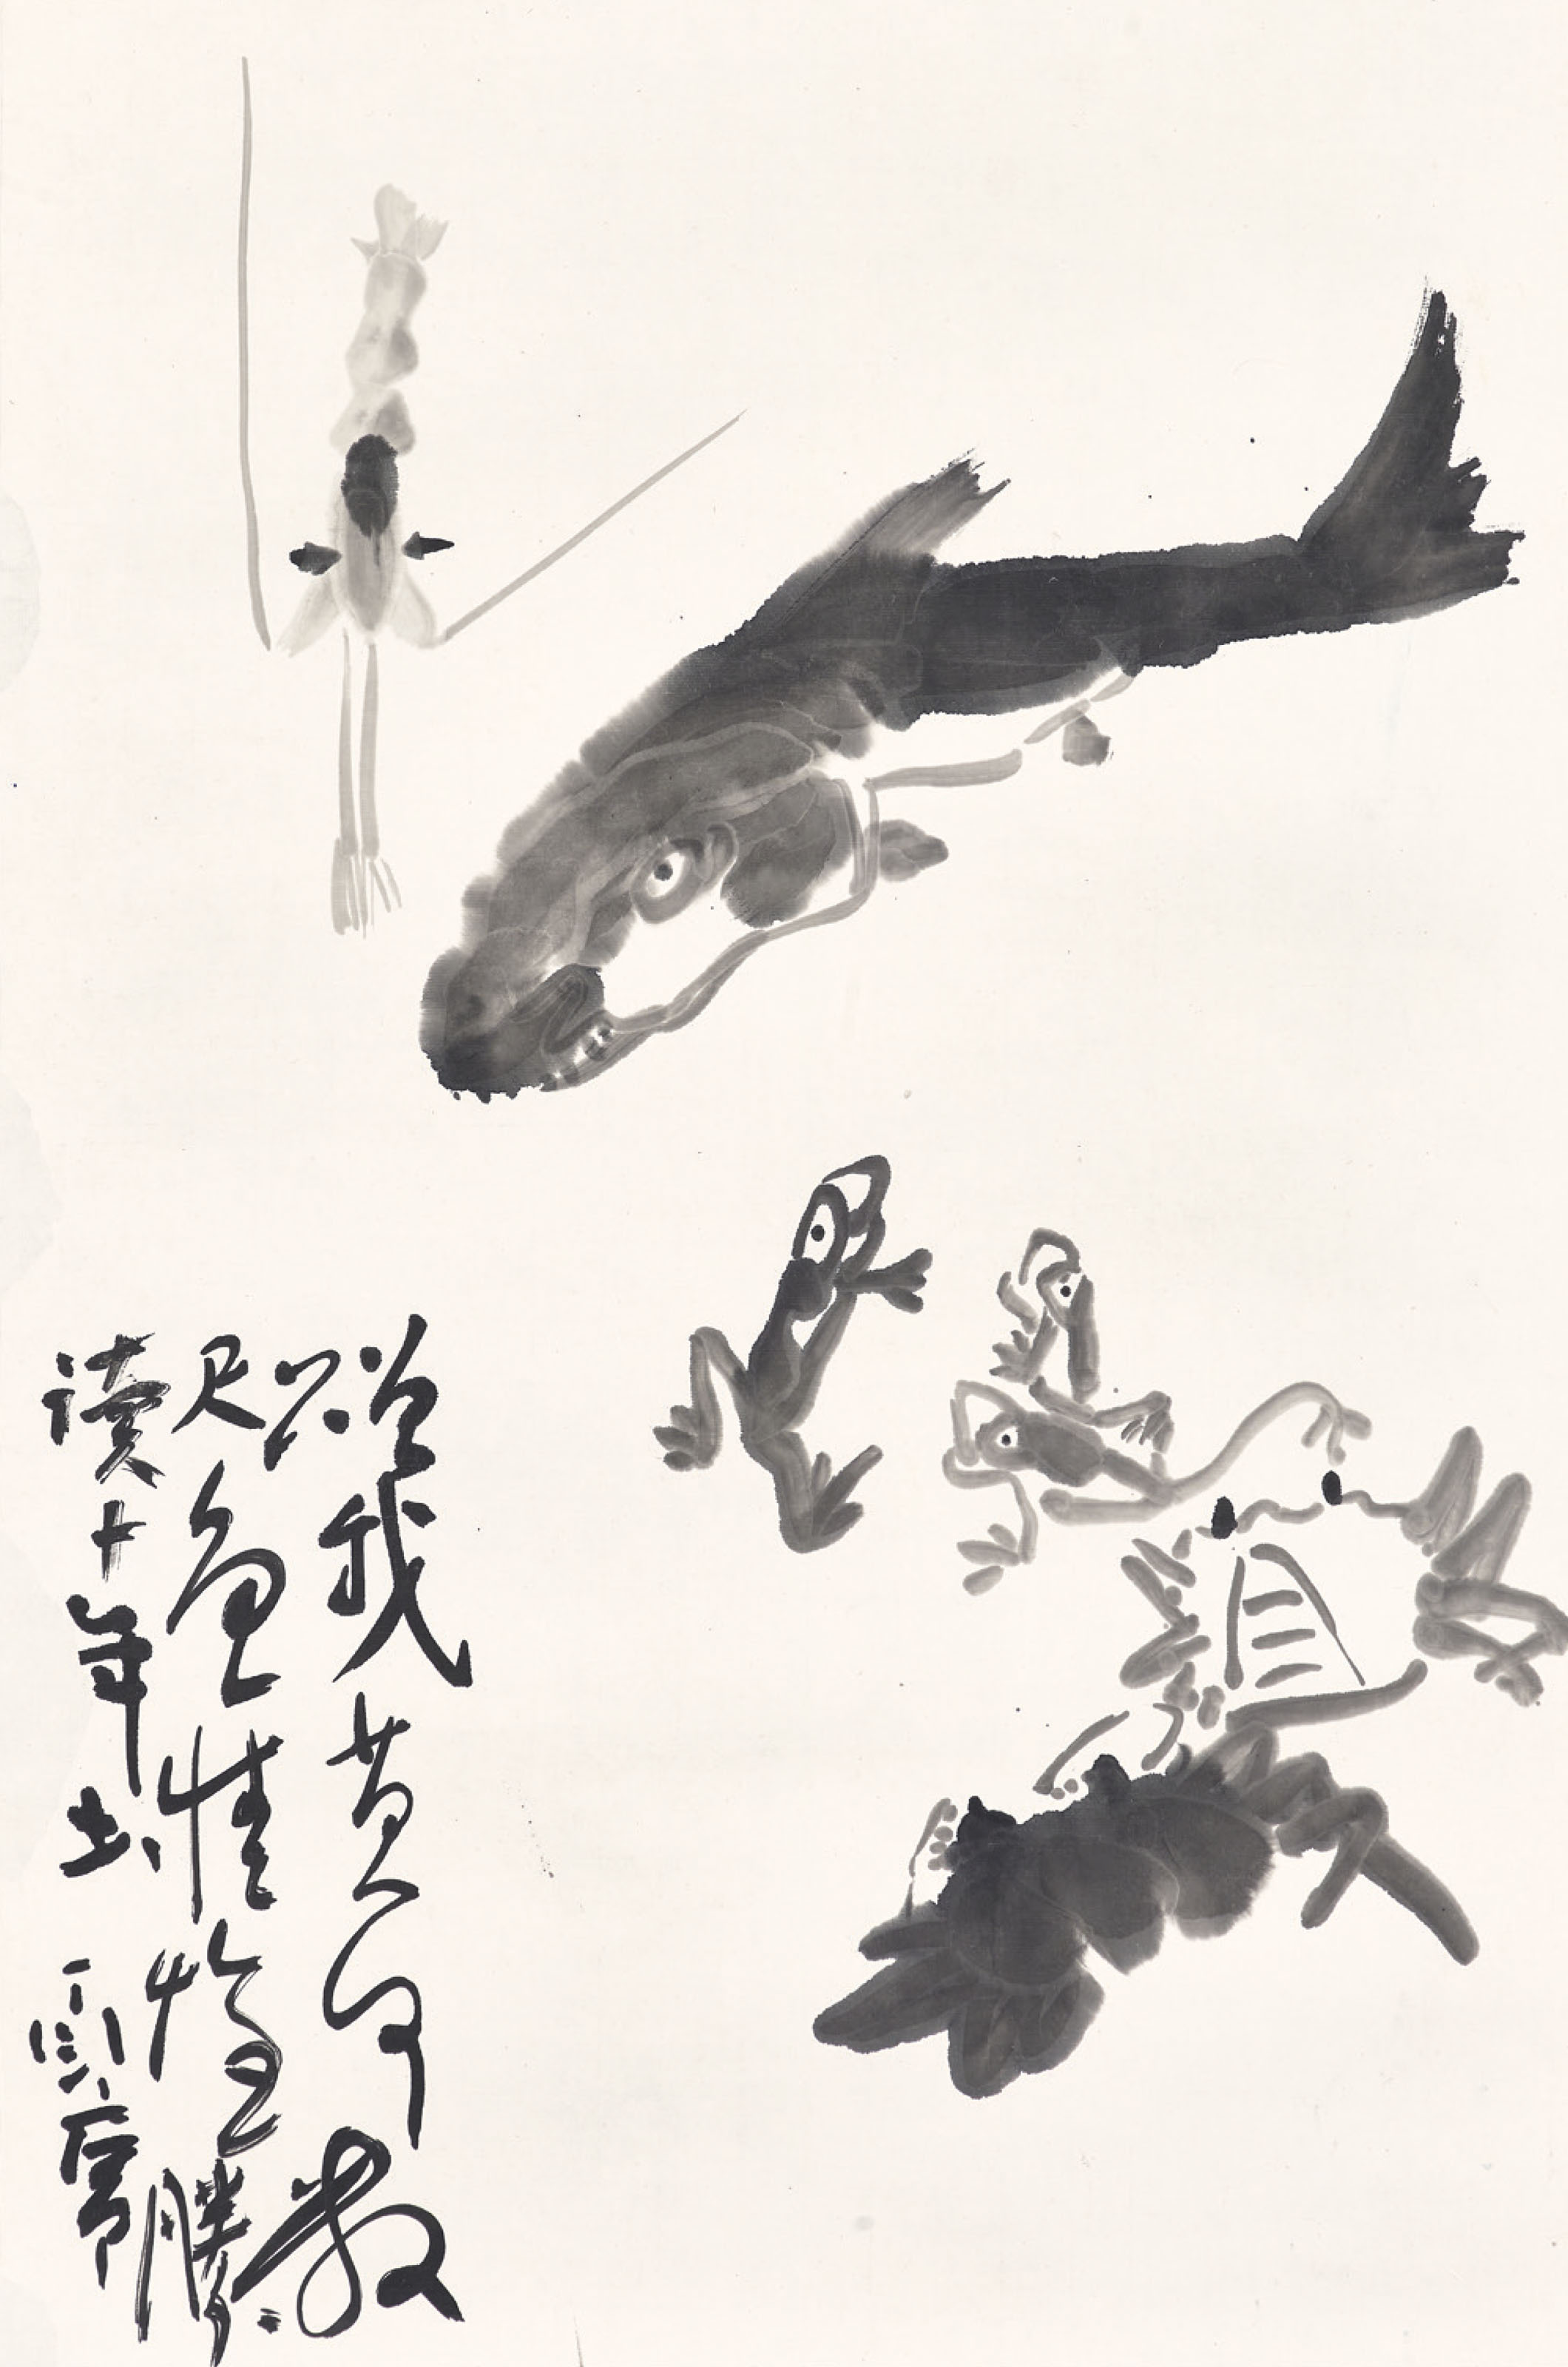 贈我黃河數
尺魚情懷勝
讀十年書 丁衍庸